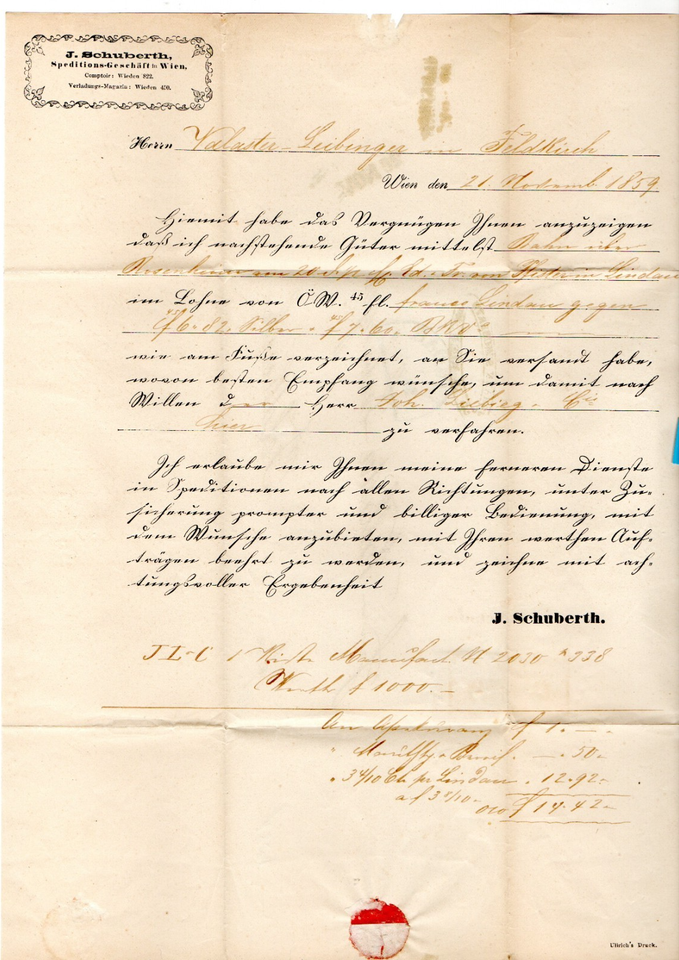 J. Schuberth,
Speditions-Geschäft in Wien,
Comptoir: Wieden 822.
Verladungs-Magazin: Wieden 450.
Herrn Valaster-Leibinger in Feldkirch
Wien den 21. Novemb 1859
Hiemit habe das Vergnügen Ihnen anzuzeigen
daß ich nachstehende Güter mittelst Bahn über
Rosenheim in Lindau
im Lohne von Ö.W. 45 fl. franco Lindau gegen
f 6. 82. Silber f 7. 60.
wie am Fuße verzeichnet, an Sie versandt habe,
wovon besten Empfang wünsche, um damit nach
Willen d Herr Joh. Liebieg & Cie
hier zu verfahren.
Ich erlaube mir Ihnen meine ferneren Dienste
in Speditionen nach allen Richtungen, unter Zu-
sicherung prompter und billiger Bedienung, mit
dem Wunsche anzubieten, mit Ihren werthen Auf-
trägen beehrt zu werden, und zeichne mit ach-
tungsvoller Ergebenheit
J. Schuberth.
J L & C 1 Kiste Manufact N 2030 338
Werth f 1000.-
f 1.-
50
3 4/10 Ctr pr Lindau 12.92
f 14.42
Ullrich's Druck.